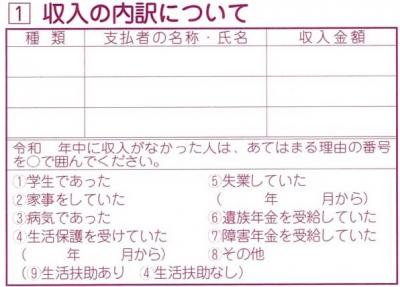 1 収入の内訳について
種類 支払者の名称・氏名 収入金額
令和 年中に収入がなかった人は、あてはまる理由の番号
を○で囲んでください。
①学生であった ⑤失業していた
②家事をしていた ( 年 月から)
③病気であった ⑥遺族年金を受給していた
④生活保護を受けていた ⑦障害年金を受給していた
( 年 月から) ⑧その他
(⑨生活扶助あり ④生活扶助なし)